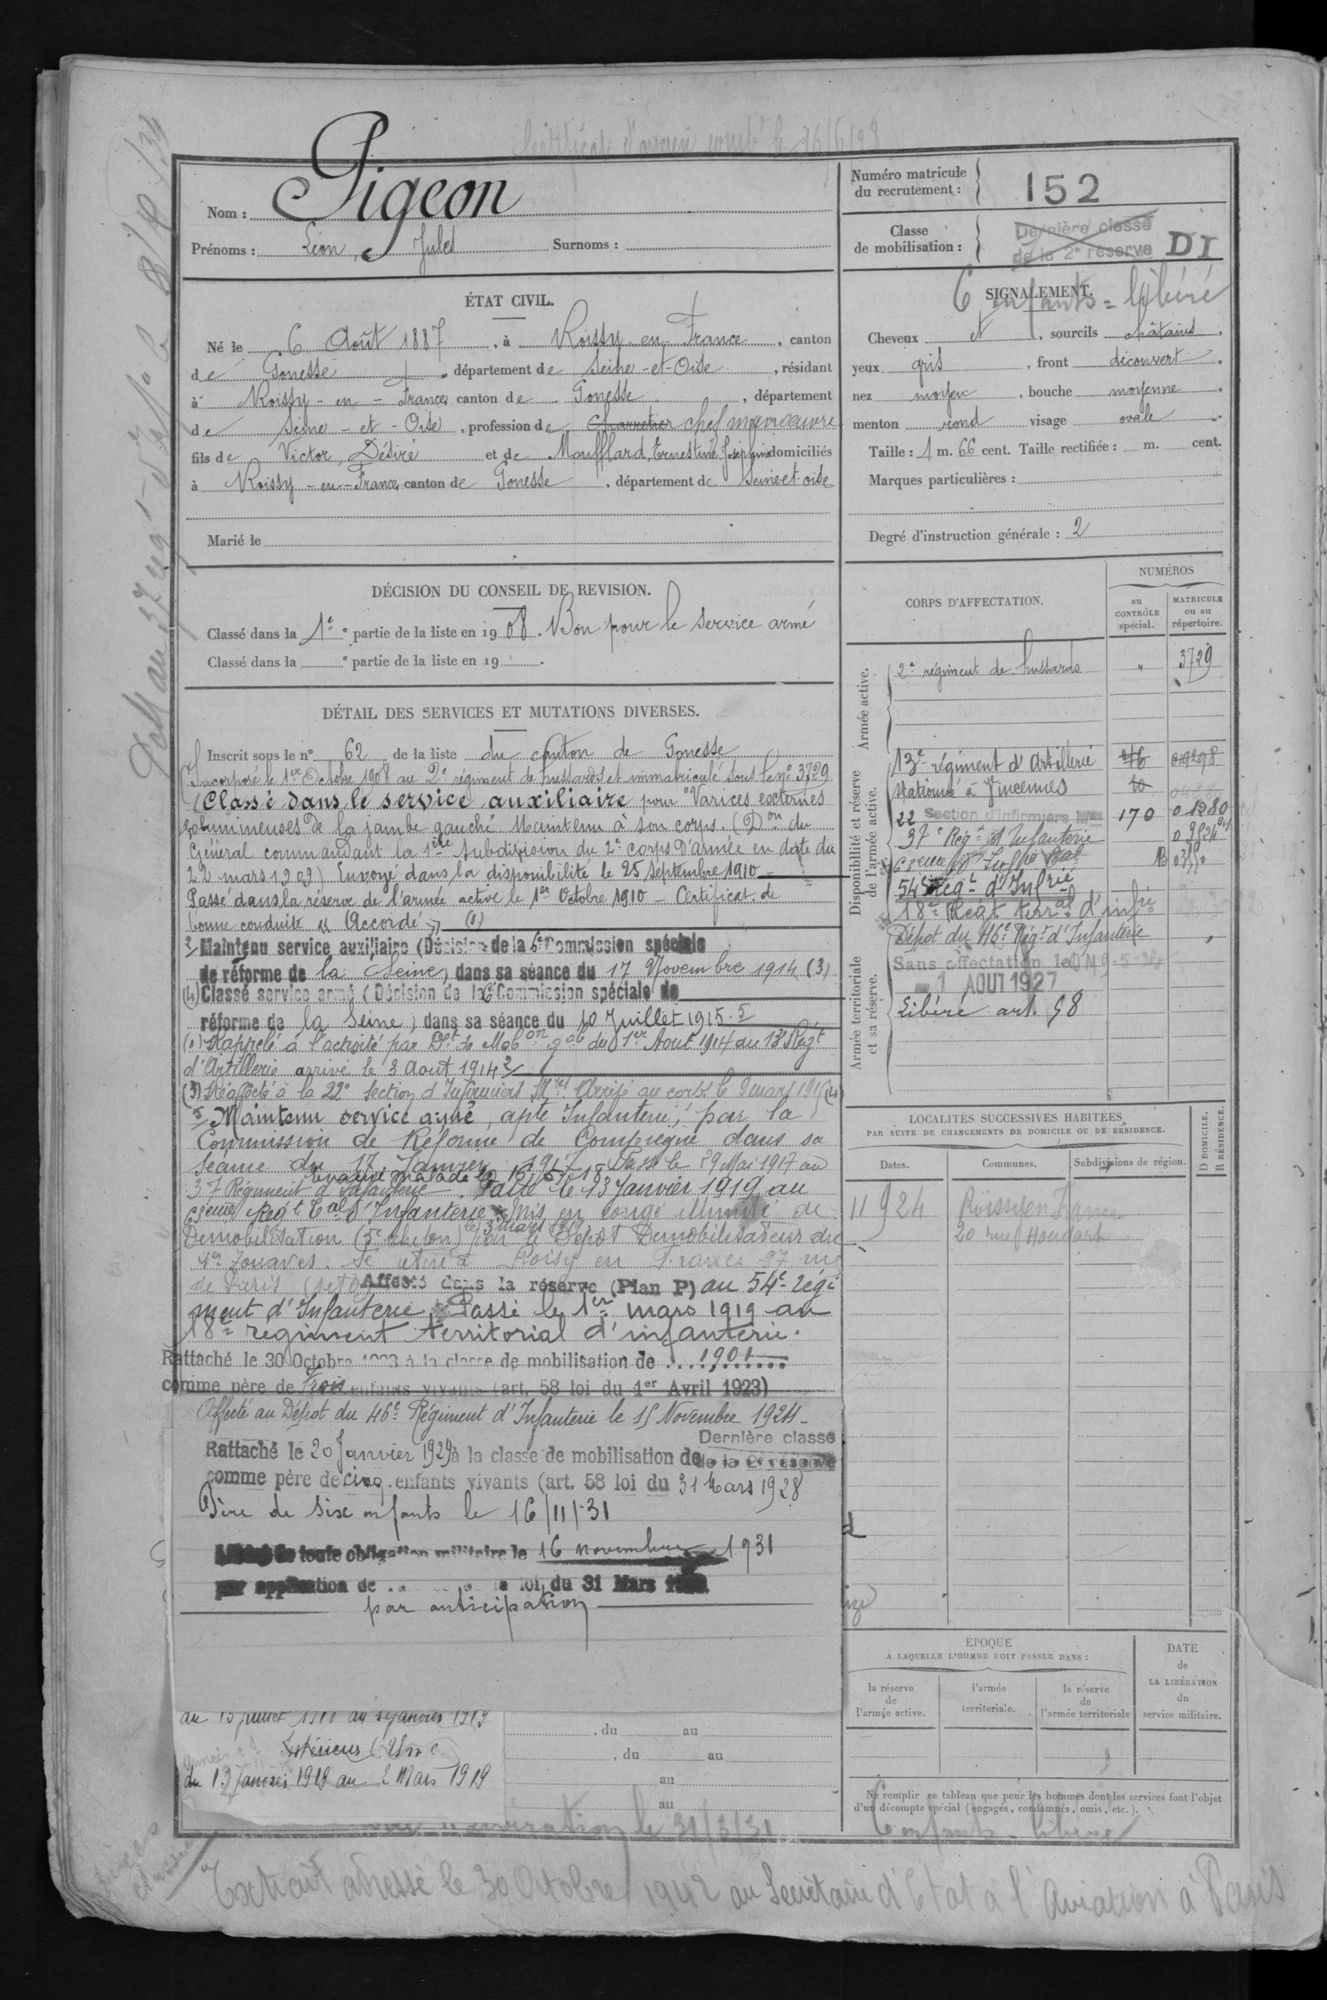 Nom : Pigeon
Prénoms : Léon, Jules Surnoms :
Numéro matricule du recrutement : 152
Classe de mobilisation : Dernière classe de la 2e réserve DI
ÉTAT CIVIL.
Né le 6 Août 1887, à Roissy-en-France, canton
de Gonesse, département de Seine-et-Oise, résidant
à Roissy-en-France, canton de Gonesse, département
de Seine-et-Oise, profession de Charretier chef manoeuvre
fils de Victor, Désiré et de Moufflard, Ernestine Joséphine domiciliés
à Roissy-en-France, canton de Gonesse, département de Seine-et-oise
Marié le
6 enfants = libéré
SIGNALEMENT.
Cheveux et, sourcils châtains,
yeux gris, front découvert,
nez moyen, bouche moyenne,
menton rond visage ovale
Taille : 1 m. 66 cent. Taille rectifiée : m. cent.
Marques particulières :
Degré d'instruction générale : 2
DÉCISION DU CONSEIL DE REVISION.
Classé dans la 1e partie de la liste en 1908. Bon pour le service armé
Classé dans la e partie de la liste en 19 .
DÉTAIL DES SERVICES ET MUTATIONS DIVERSES.
Inscrit sous le n° 62 de la liste du canton de Gonesse
Incorporé le 1er Octobre 1908 au 2e régiment de hussards et immatriculé sous le n° 3729
Classé dans le service auxiliaire pour "Varices externes
volumineuses de la jambe gauche. Maintenu à son corps. (Don du
Général commandant la 1ère subdivision du 2e corps d'armée en date du
22 mars 1909) Envoyé dans la disponibilité le 25 Septembre 1910
Passé dans la réserve de l'armée active le 1er Octobre 1910 - Certificat de
bonne conduite "Accordé" (1)
2 Maintenu service auxiliaire (Décision de la 6e Commission spéciale
de réforme de la Seine) dans sa séance du 17 Novembre 1914 (3)
(4) Classé service armé (Décision de la 6e Commission spéciale de
réforme de la Seine) dans sa séance du 10 Juillet 1915. 5
(1) Rappelé à l'activité par Dt de Mobon gale du 1er Août 1914 au 13e Régt
d'Artillerie arrivé le 3 Août 1914 2
(3) Réaffecté à la 22e Section d'Infirmiers Mres Arrivé au corps le 9 mars 1915 (4)
5 Maintenu service armé, apte Infanterie, par la
Commission de Réforme de Compiègne dans sa
séance du 17 Janvier 1917 Passé le 29 Mai 1917 au
37 Régiment d'Infanterie. Passé le 13 Janvier 1919 au
Régt Tal d'Infanterie Mis en congé illimité de
Démobilisation le 3 mars 1919 par le Dépôt Démobilisateur du
1er Zouaves. Se retire à Roissy en France 27 rue
de Paris Affecté dans la réserve (Plan P) au 54e régi
ment d'Infanterie Passé le 1er mars 1919 au
18e régiment territorial d'infanterie.
Rattaché le 30 Octobre 1923 à la classe de mobilisation de 1901
comme père de Trois enfants vivants (art. 58 loi du 1er Avril 1923)
Affecté au Dépôt du 46e Régiment d'Infanterie le 15 Novembre 1924
Rattaché le 20 Janvier 1929 à la classe de mobilisation de Dernière classe de la 2e réserve
comme père de cinq enfants vivants (art. 58 loi du 31 Mars 1928
Père de six enfants le 16/11/31
Libéré de toute obligation militaire le 16 novembre 1931
par application de la loi du 31 Mars 1928
par anticipation
CORPS D'AFFECTATION.
NUMÉROS
au CONTRÔLE spécial.
MATRICULE ou au répertoire.
Armée active.
2e régiment de hussards " 3729
Disponibilité et réserve de l'armée active.
13e régiment d'Artillerie
stationné à Vincennes
22 Section d'infirmiers 170 01280
37e Régt d'Infanterie
54e Régt d'Infrie
18e Régt terral d'infie
Armée territoriale et sa réserve.
Dépôt du 46e Régt d'Infanterie
Sans affectation le
1 AOUT 1927
Libéré art. 58
LOCALITÉS SUCCESSIVES HABITÉES
PAR SUITE DE CHANGEMENTS DE DOMICILE OU DE RÉSIDENCE.
Dates. Communes. Subdivisions de région. D DOMICILE. R RÉSIDENCE.
11 924 Roissy en France
20 rue Houdart
ÉPOQUE
A LAQUELLE L'HOMME DOIT PASSER DANS :
la réserve de l'armée active.
l'armée territoriale.
la réserve de l'armée territoriale
DATE de LA LIBÉRATION du service militaire.
, du au
, du au
au
au
Intérieur
du 13 Janvier 1919 au 2 Mars 1919
Ne remplir ce tableau que pour les hommes dont les services font l'objet
d'un décompte spécial (engagés, condamnés, omis, etc.).
6 enfants - libéré
Extrait adressé le 30 Octobre 1942 au Secrétaire d'Etat à l'Aviation à Paris